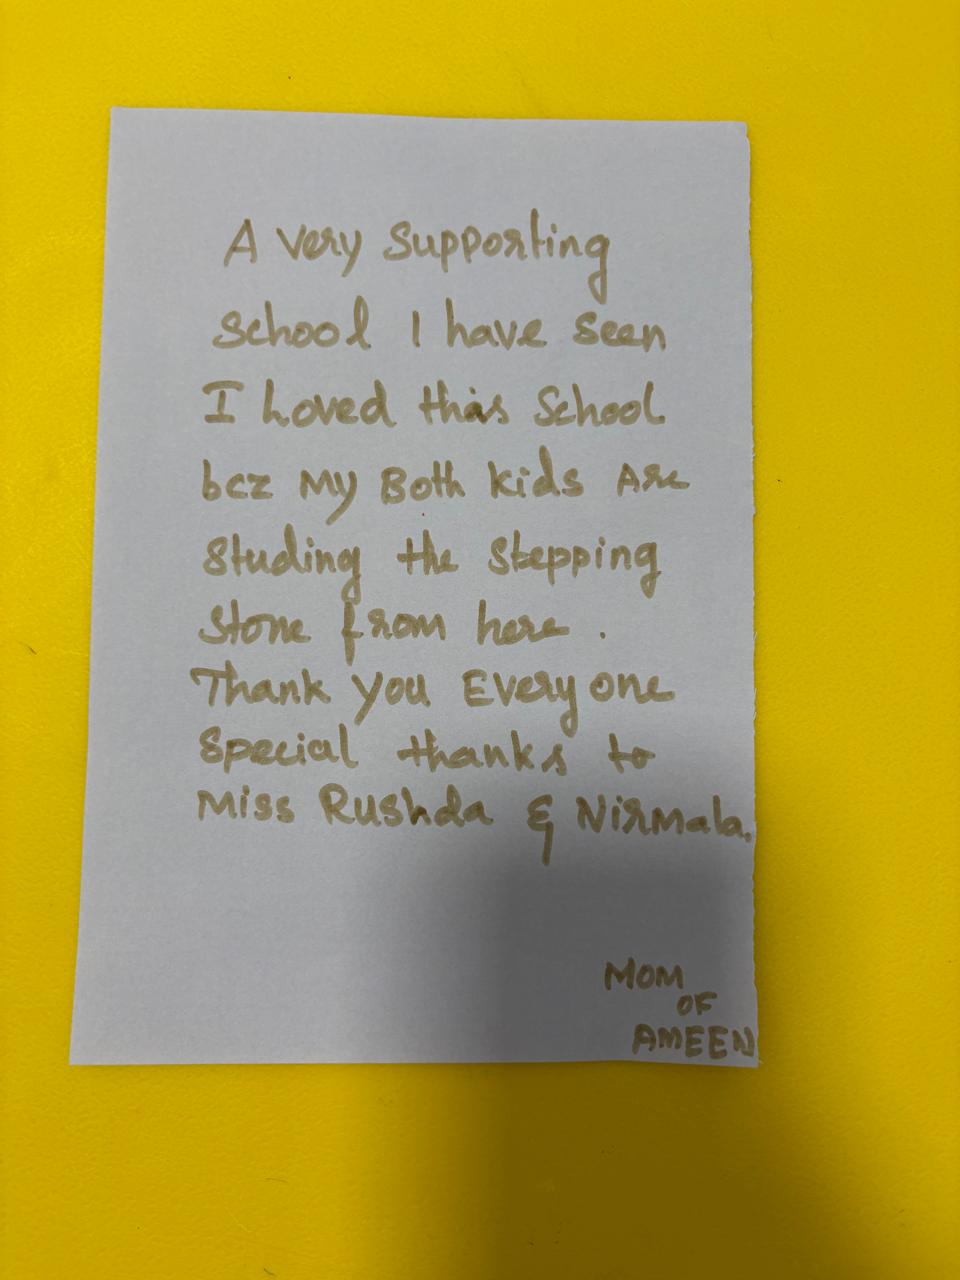 A very Supporting
School I have Seen
I Loved this School
bcz My Both kids Are
Studing the Stepping
Stone from here .
Thank you Every one
Special thanks to
Miss Rushda & Nirmala.
MOM
OF
AMEEN